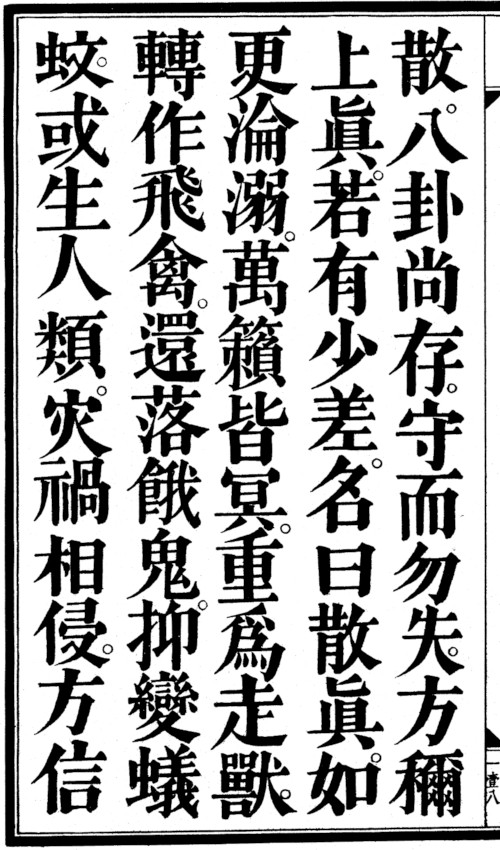 散。八卦尚存。守而勿失。方稱
上眞。若有少差。名曰散眞。如
更淪溺。萬籟皆冥。重爲走獸。
轉作飛禽。還落餓鬼。抑變蟻
蚊。或生人類。灾禍相侵。方信
一
壹八